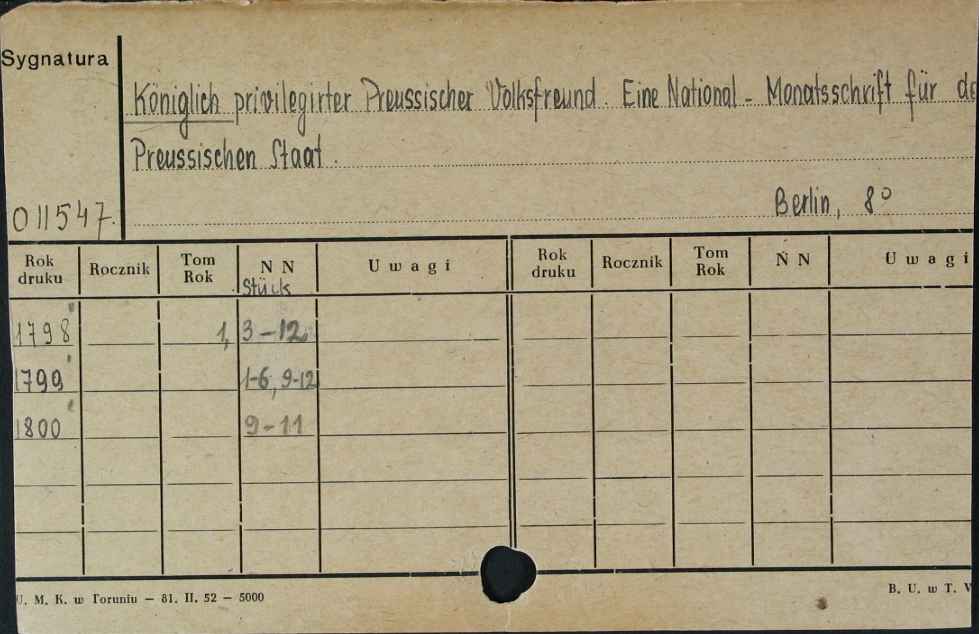 Sygnatura
Königlich privilegirter Preussischer Volksfreund. Eine National - Monatsschrift für
Preussischen Staat.
011547.
Berlin, 8°
Rok druku Rocznik Tom Rok N N Uwagi Rok druku Rocznik Tom Rok N N Uwagi
Stück
1798 1, 3-12
1799 1-6, 9-12
1800 9-11
U. M. K. w Toruniu — 81. II. 52 — 5000
B. U. w T.